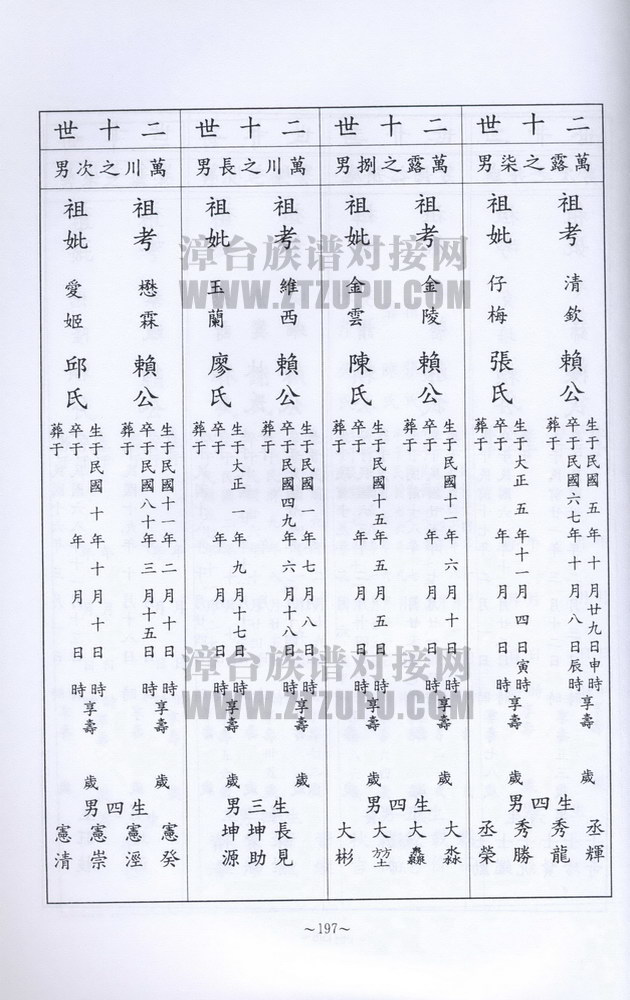 二十世
萬露之柒男
祖考 清欽 賴公
生于民國 五 年 十 月廿九日申時
卒于民國六七年 十 月 八 日辰時 享壽 歲
葬于
祖妣 仔梅 張氏
生于大正 五 年十一月 四 日寅時
卒于 年 月 日 時 享壽 歲
葬于
生四男
丞輝
秀龍
秀勝
丞榮
二十世
萬露之捌男
祖考 金陵 賴公
生于民國十一年 六 月 十 日 時
卒于 年 月 日 時 享壽 歲
葬于
祖妣 金雲 陳氏
生于民國十五年 五 月 五 日 時
卒于 年 月 日 時 享壽 歲
葬于
生四男
大淼
大
大
大彬
二十世
萬川之長男
祖考 維西 賴公
生于民國 一 年 七 月 八 日 時
卒于民國四九年 六 月十八日 時 享壽 歲
葬于
祖妣 玉蘭 廖氏
生于大正 一 年 九 月十七日 時
卒于 年 月 日 時 享壽 歲
葬于
生三男
長見
坤助
坤源
二十世
萬川之次男
祖考 懋霖 賴公
生于民國十一年 二 月 十 日 時
卒于民國八十年 三 月十五日 時 享壽 歲
葬于
祖妣 愛姬 邱氏
生于民國 十 年 十 月 十 日 時
卒于 年 月 日 時 享壽 歲
葬于
生四男
憲癸
憲涇
憲崇
憲清
～197～
漳台族谱对接网
WWW.ZTZUPU.COM
漳台族谱对接网
WWW.ZTZUPU.COM